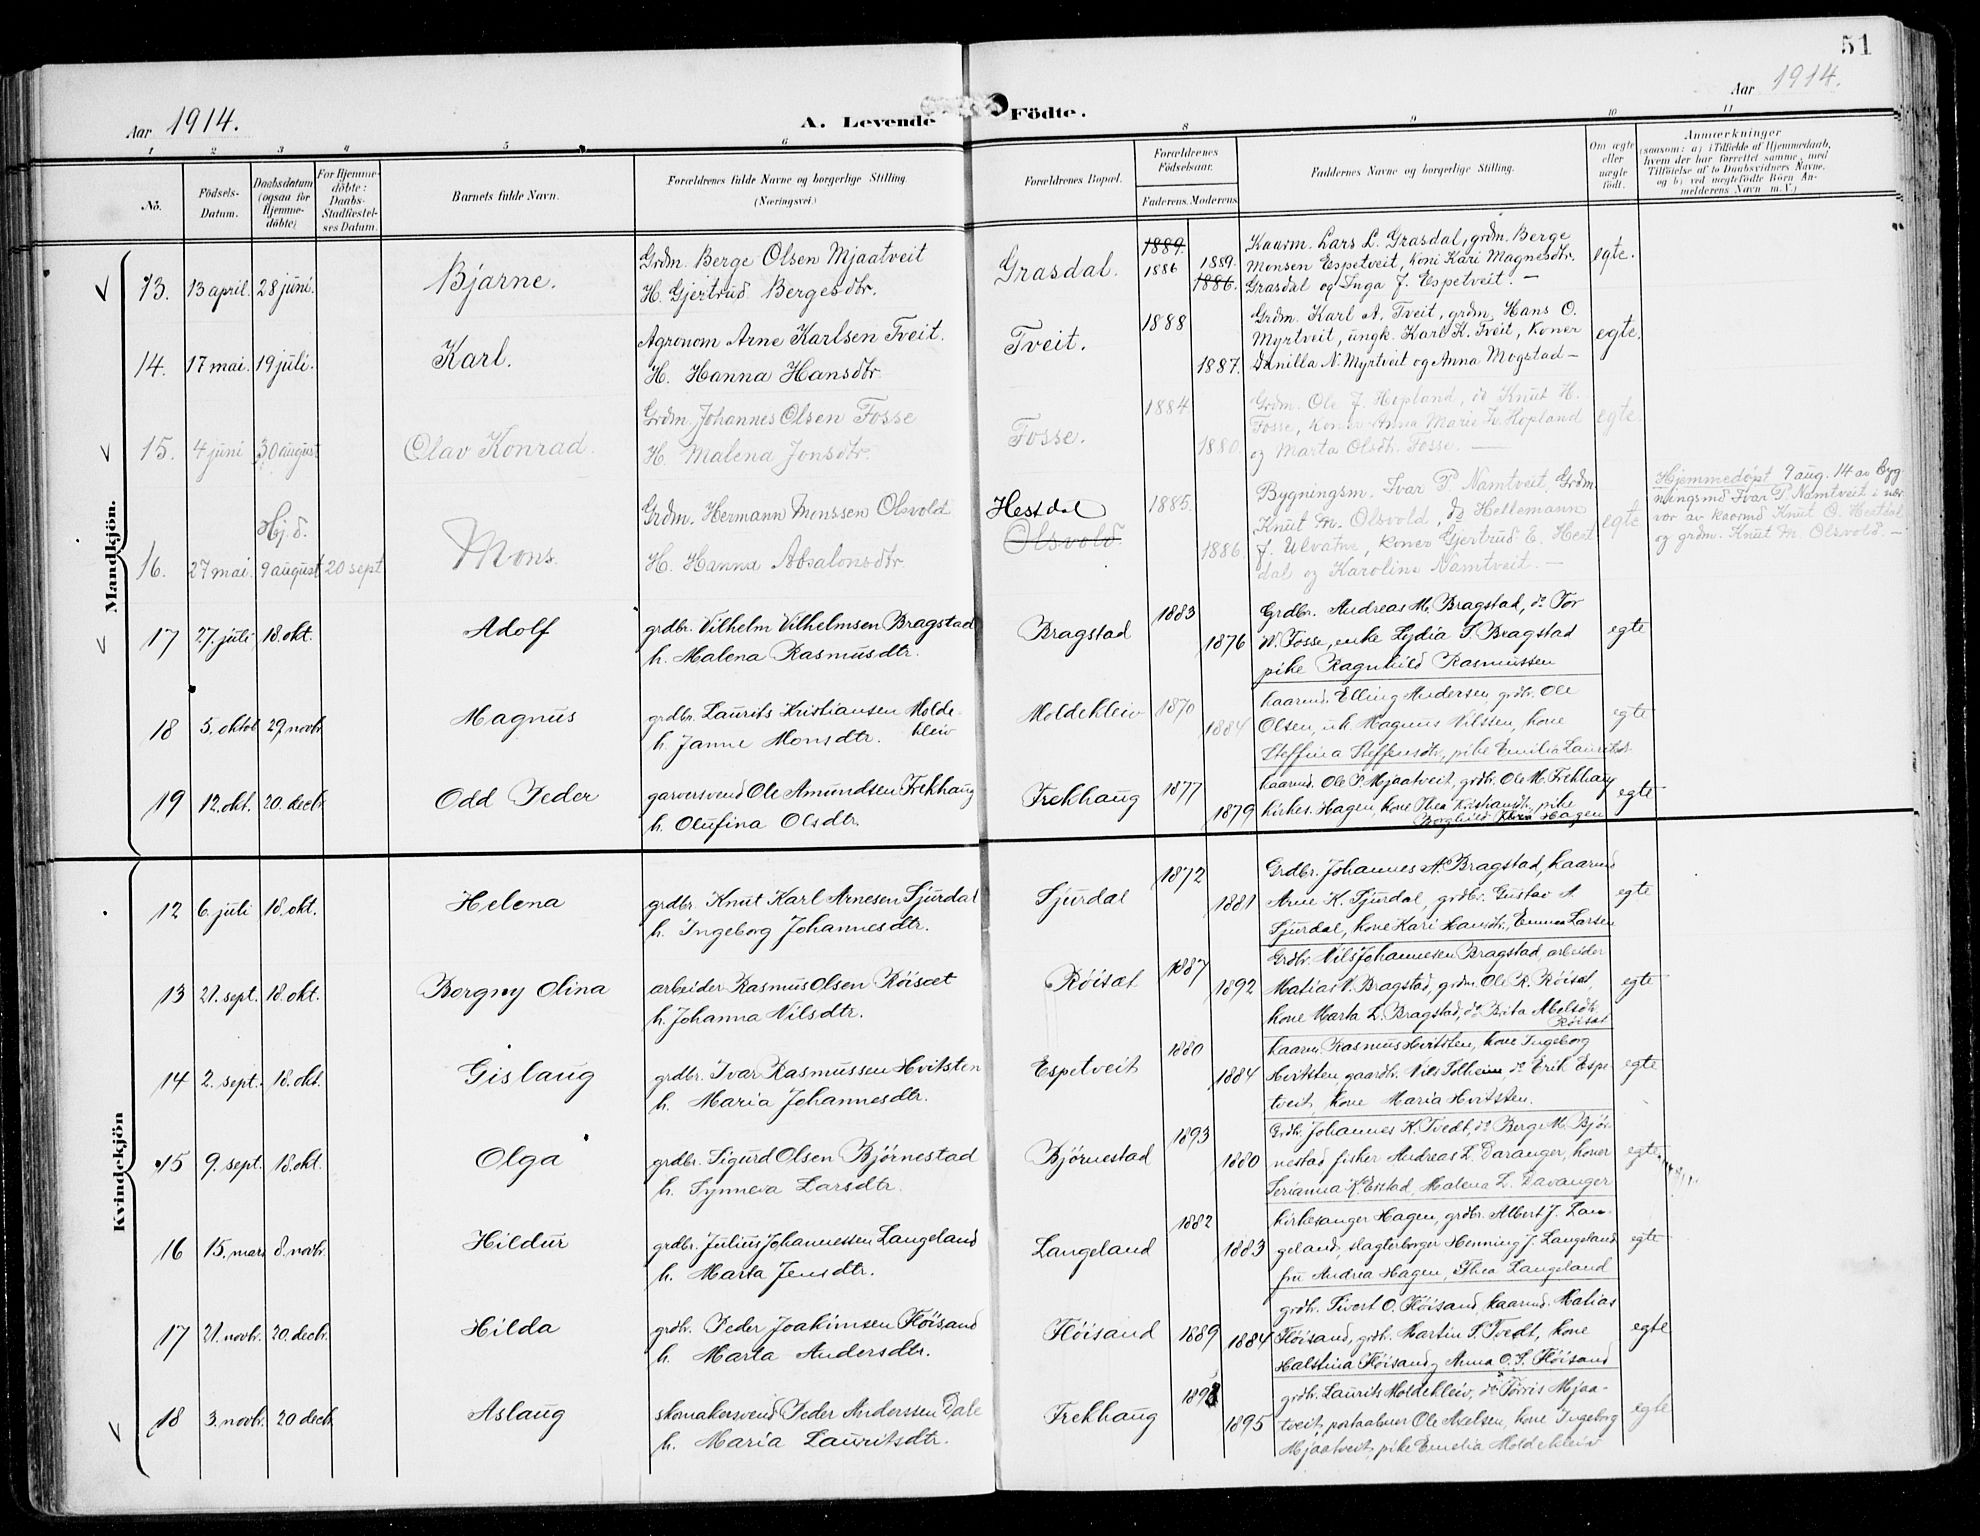 51
Aar 1914.
A. Levende Födte.
Aar 1914.
1 2 3 4 5 6 8 9 10 11
No.
Födsels-Datum.
Daabsdatum (ogsaa for Hjemme-döbte)
For Hjemme-döbte: Daabs-Stadfæstel-ses Datum.
Barnets fulde Navn.
Forældrenes fulde Navne og borgerlige Stilling.
(Næringsvei.)
Forældrenes Bopæl.
Forældrenes Födselsaar.
Faderens. Moderens
Faddernes Navne og borgerlige Stilling.
Om ægte eller uægte födt.
Anmærkninger
(saasom: a) i Tilfælde af Hjemmedaab,
hvem der har forrettet samme, med
Tilföielse af to Daabsvidners Navne,
og b) ved uægtefödte Börn An-
melderens Navn m. V.)
Mandkjön.
13. 13 april. 28 juni. Bjarne.
Grdm. Berge Olsen Mjaatveit
H. Gjertrud Bergesdtr.
Grasdal.
1889 1886 1889. 1886.
Kaarm. Lars L. Grasdal, grdm. Berge
Monsen Espetveit, koni Kari Magnesdtr.
Grasdal og Inga J. Espetveit. —
egte.
14. 17 mai. 19 juli. Karl.
Agronom Arne Karlsen Tveit.
H. Hanna Hansdtr
Tveit.
1888 1887.
Grdm. Karl A. Tveit, grdm. Hans O.
Myrtveit, ungk. Karl K. Tveit, koner
Danilla N. Myrtveit og Anna Mogstad —
egte.
15. 4 juni 30 august Olav Konrad.
Grdm. Johannes Olsen Fosse
H. Malena Jonsdtr.
Fosse.
1884 1880.
Grdm. Ole J. Hopland, do Knut H.
Fosse, koner Anna Marie Hopland
og Marta Olsdtr. Fosse. —
egte.
16. 27 mai Hj.d. 9 august 20 sept Mons.
Grdm. Hermann Monssen Olsvold
H. Hanna Absalonsdtr
Hestdal
Olsvold.
1885. 1886.
Bygningsm. Ivar P. Namtveit, Grdm.
Knut M. Olsvold, do Hellemann
J. Ulvatne, koner Gjertrud E. Hest
dal og Karoline Namtveit. —
egte
Hjemmedöpt 9 aug. 14 av byg-
ningsmd Ivar P. Namtveit i nær
vær av kaarmd Knut O. Hestdal
og grdm. Knut M. Olsvold. —
17 27. juli 18. okt. Adolf
grdbr. Vilhelm Vilhelmsen Bragstad
h. Malena Rasmusdtr.
Bragstad
1883 1876
Grdbr. Andreas M. Bragstad, do Tor
N. Fosse, enke Lydia S. Bragstad
pike Ragnhild Rasmussen
egte
18 5. oktob 29. novbr. Magnus
grdbr. Laurits Kristiansen Molde-
kleiv
h. Janne Monsdtr.
Moldekleiv
1870 1884
kaarmd. Elling Andersen, grdbr. Ole
Olsen, u.k. Magnus Nilssen, kone
Steffina Steffensdtr, pike Emilia Lauritsdtr.
egte
19 12. okt. 20. decbr Odd Peder
garversvend Ole Amundsen Frekhaug
h. Olufina Olsdtr.
Frekhaug
1877 1879
kaarmd. Ole P. Mjaatveit, grdbr. Ole M. Frekhaug
kirkes. Hagen, kone Thea Kristiansdtr., pike
Borghild Hagen
egte
Kvindekjön
12 6. juli 18. okt. Helena
grdbr. Knut Karl Arnesen Sjurdal
h. Ingeborg Johannesdtr.
Sjurdal
1872 1881
Grdbr. Johannes A. Bragstad, kaarmd
Arne K. Sjurdal, grdbr. Gustav A.
Sjurdal, kone Kari Hansdtr., Emma Larsen
egte
13 21. sept. 18. okt. Borgny Olina
arbeider Rasmus Olsen Röisæt
h. Johanna Nilsdtr.
Röisæt
1887 1892
Grdbr. Nils Johannesen Bragstad, arbeider
Matias N. Bragstad, grdm. Ole R. Röisæt,
kone Marta L. Bragstad, do Brita Abelsdtr.
Röisæt
egte
14 2. sept. 18. okt. Gislaug
grdbr. Ivar Rasmussen Hvitsten
h. Maria Johannesdtr.
Espetveit
1880 1884
kaarm. Rasmus Hvitsten, kone Ingeborg
Hvitsten, gaardbr. Nils Solheim, do Erik Espe
tveit, kone Maria Hvitsten.
egte
15 9. sept. 18. okt. Olga
grdbr. Sigurd Olsen Björnestad
h. Synneva Larsdtr.
Björnestad
1893 1880
Grdbr. Johannes K. Tvedt, do Berge M. Björ
nestad, fisker Andreas L. Davanger, koner
Serianna K. Eistad, Malena L. Davanger
egte
16 15. mars 8. novbr. Hildur
grdbr. Julius Johannessen Langeland
h. Marta Jensdtr.
Langeland
1882 1883
kirkesanger Hagen, grdbr. Albert J. Lan-
geland, slagterborger Henning J. Langeland
fru Andrea Hagen, Thea Langeland
egte
17 21. novbr. 20. decbr. Hilda
grdbr. Peder Joakimsen Flöisand
h. Marta Andersdtr.
Flöisand
1889 1884
grdbr. Sivert O. Flöisand, kaarmd. Matias
Flöisand, grdbr. Martin S. Tvedt, kone
Halstina Flöisand, Anna O. S. Flöisand
egte
18 3. novbr. 20 decbr. Aslaug
skomakersvend Peder Anderssen Dale
h. Maria Lauritsdtr.
Frekhaug
1893 1895
grdbr. Laurits Moldekleiv, do Torris Mjaa-
tveit, postaabner Ole Axelsen, kone Ingeborg
Mjaatveit, pike Emelia Moldekleiv
egte